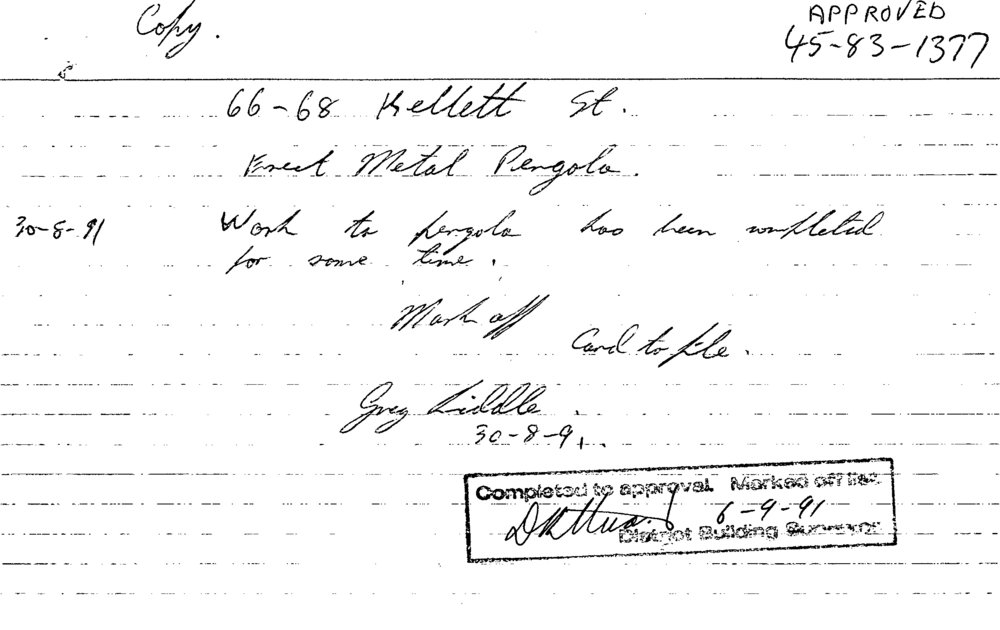 Copy.
APPROVED
45-83-1377
66-68 Kellett St.
Erect Metal Pergola.
30-8-91 Work to pergola has been completed
for some time.
Mark off
Card to file.
Greg Liddle.
30-8-91.
Completed to approval. Marked off list.
6-9-91
District Building Surveyor.